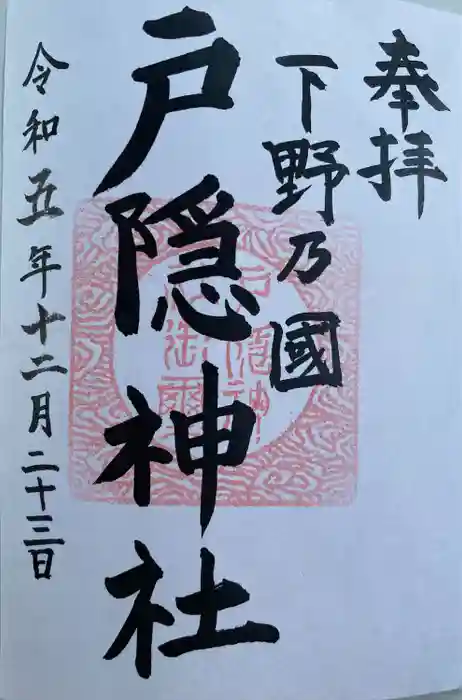 奉拝
下野乃國
戸隠神社
令和五年十二月二十三日